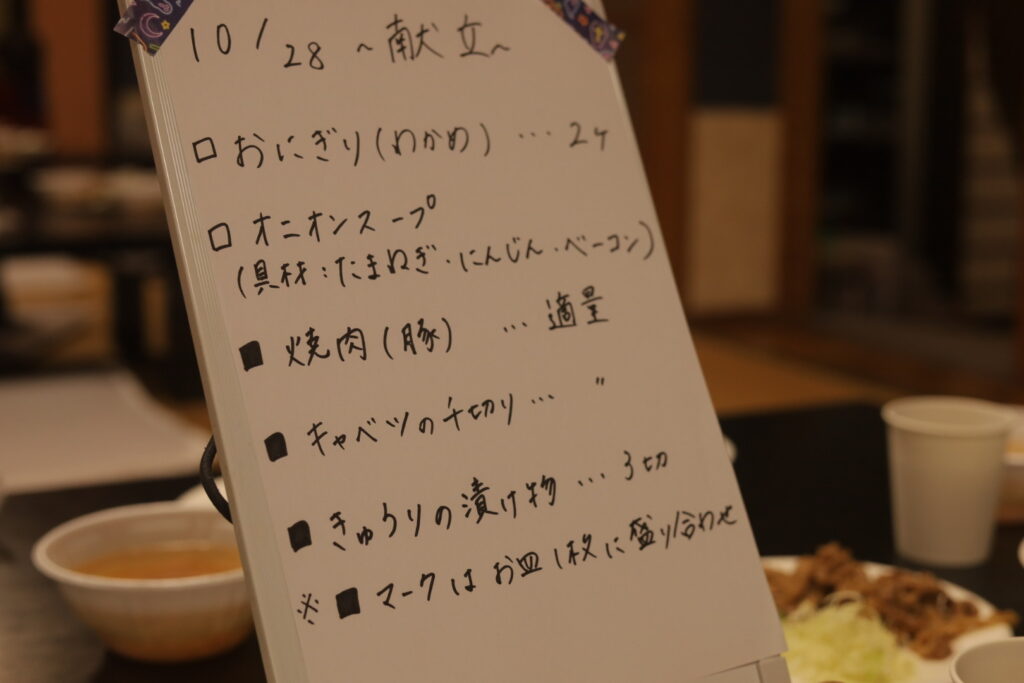 10/28 ~献立~
□ おにぎり(わかめ) … 2ヶ
□ オニオンスープ
(具材:たまねぎ・にんじん・ベーコン)
■ 焼肉(豚) … 適量
■ キャベツの千切り … 〃
■ きゅうりの漬け物 … 3切
※ ■ マークはお皿1枚に盛り合わせ